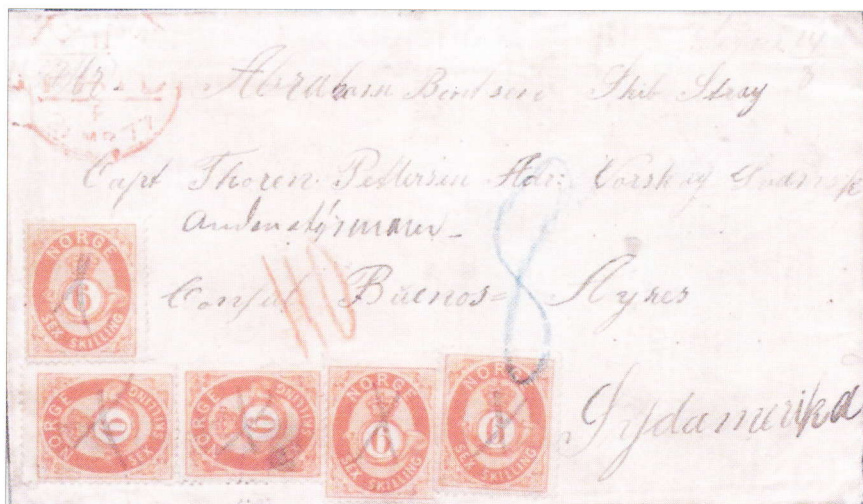 Abraham Berntsen Skib Stray
Capt Thoren Pettersen Norsk og Svensk
Andenstyrmann
Consul Buenos= Ayres
Sydamerika
8
NORGE
6
SEX SKILLING
NORGE
6
SEX SKILLING
NORGE
6
SEX SKILLING
NORGE
6
SEX SKILLING
NORGE
6
SEX SKILLING